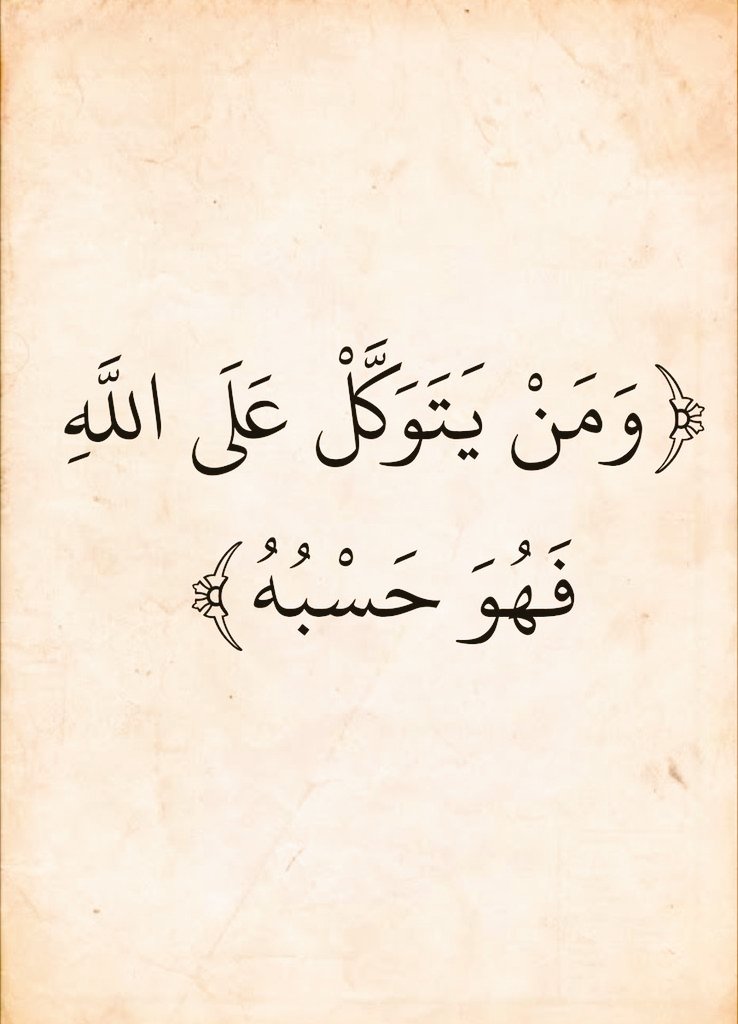 ﴿وَمَنْ يَتَوَكَّلْ عَلَى اللَّهِ
فَهُوَ حَسْبُهُ﴾